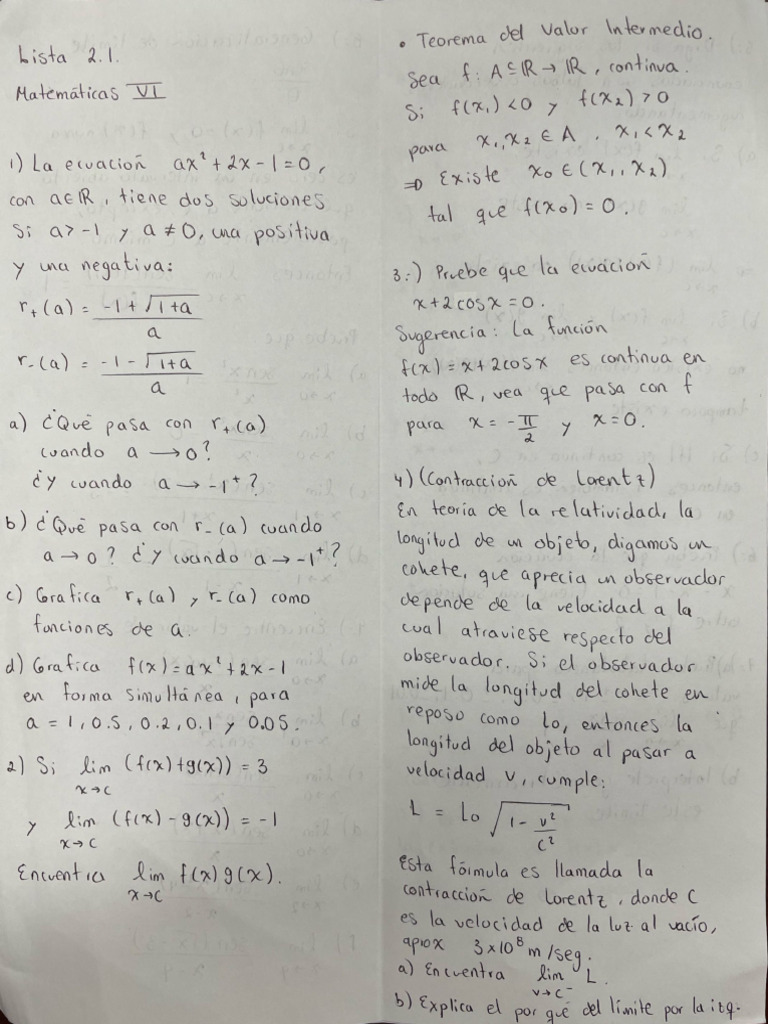 Lista 2.1.
Matemáticas VI
1) La ecuación ax² + 2x - 1 = 0,
con a∈ℝ, tiene dos soluciones
Si a > -1 y a ≠ 0, una positiva
y una negativa:
r₊(a) = (-1 + √(1+a)) / a
r₋(a) = (-1 - √(1+a)) / a
a) ¿Qué pasa con r₊(a)
cuando a → 0?
¿y cuando a → -1⁺?
b) ¿Qué pasa con r₋(a) cuando
a → 0? ¿y cuando a → -1⁺?
c) Grafica r₊(a) y r₋(a) como
funciones de a.
d) Grafica f(x) = ax² + 2x - 1
en forma simultánea, para
a = 1, 0.5, 0.2, 0.1 y 0.05.
2) Si lim x→c (f(x)+g(x)) = 3
y lim x→c (f(x) - g(x)) = -1
Encuentra lim x→c f(x)g(x).
• Teorema del Valor Intermedio.
Sea f: A⊆ℝ → ℝ, continua.
Si f(x₁) < 0 y f(x₂) > 0
para x₁, x₂ ∈ A, x₁ < x₂
⇒ Existe x₀ ∈ (x₁, x₂)
tal que f(x₀) = 0.
3.-) Pruebe que la ecuación
x + 2cosx = 0.
Sugerencia: La función
f(x) = x + 2cosx es continua en
todo ℝ, vea que pasa con f
para x = -π/2 y x = 0.
4) (Contracción de Lorentz)
En teoría de la relatividad, la
longitud de un objeto, digamos un
cohete, que aprecia un observador
depende de la velocidad a la
cual atraviese respecto del
observador. Si el observador
mide la longitud del cohete en
reposo como Lo, entonces la
longitud del objeto al pasar a
velocidad v, cumple:
L = Lo √(1 - v²/c²)
Esta fórmula es llamada la
contracción de Lorentz, donde C
es la velocidad de la luz al vacío,
aprox 3×10⁸ m/seg.
a) Encuentra lim v→c⁻ L.
b) Explica el por qué del límite por la izq.